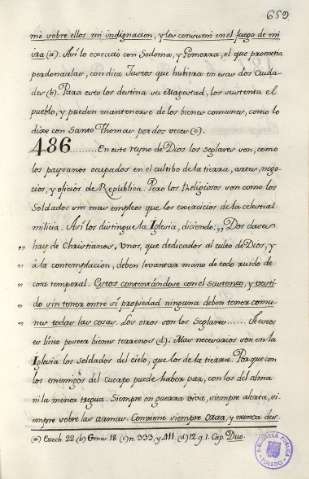 659
mé sobre ellos mi indignacion, y los consumí en el fuego de mi
ira (a). Así lo executó con Sodoma, y Gomorra, el que prometia
perdonarlas, con diez Justos que hubiera en esas dos Ciuda-
des (b). Para esto los destina su Magestad, los sustenta el
pueblo, y pueden mantenerse de los bienes comunes, como lo
dice con Santo Thomas por dos veces (c).
486 ......... En este reyno de Dios los seglares son, como
los paysanos ocupados en el cultibo de la tierra, artes, nego-
cios, y oficios de Republica. Pero los Religiosos son como los
Soldados sin mas empleos que los exercicios de la celestial
milicia. Así los distingue la Iglesia, diciendo: „ Dos clases
„ hay de Christianos, Unos, que dedicados al culto de Dios, y
„ á la contemplacion, deben levantar mano de todo ruido de
„ cosas temporal. Estos contentandose con el sustento, y vesti-
„ do sin tener entre sí propiedad ninguna deben tener comu-
„ nes todas las cosas. Los otros son los Seglares ......
bien poseer bienes terrenos (d). Mas necesarios son en la
Iglesia los soldados del cielo, que los de la tierra. Porque con
los enemigos del cuerpo puede haber paz, con los del alma
ni la menor tregua. Siempre en guerra viva, siempre alerta, si-
empre sobre las armas. Conviene siempre orar, y nunca des-
(a) Ezech. 22 (b) Genes. 18. (c) n. 333. y 411 (d) 12. q. 1. Cap. Duo.